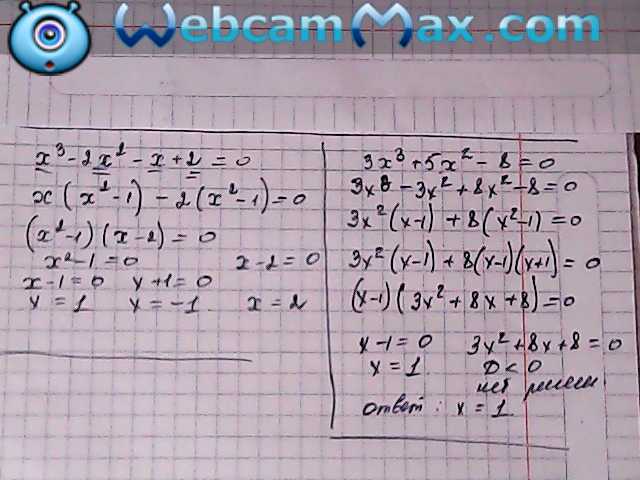 WebcamMax.com
x³ - 2x² - x + 2 = 0
x(x² - 1) - 2(x² - 1) = 0
(x² - 1)(x - 2) = 0
x² - 1 = 0 x - 2 = 0
x - 1 = 0 x + 1 = 0
x = 1 x = -1 x = 2
3x³ + 5x² - 8 = 0
3x³ - 3x² + 8x² - 8 = 0
3x²(x-1) + 8(x²-1) = 0
3x²(x-1) + 8(x-1)(x+1) = 0
(x-1)(3x² + 8x + 8) = 0
x - 1 = 0 3x² + 8x + 8 = 0
x = 1 D < 0
нет решен
ответ: x = 1